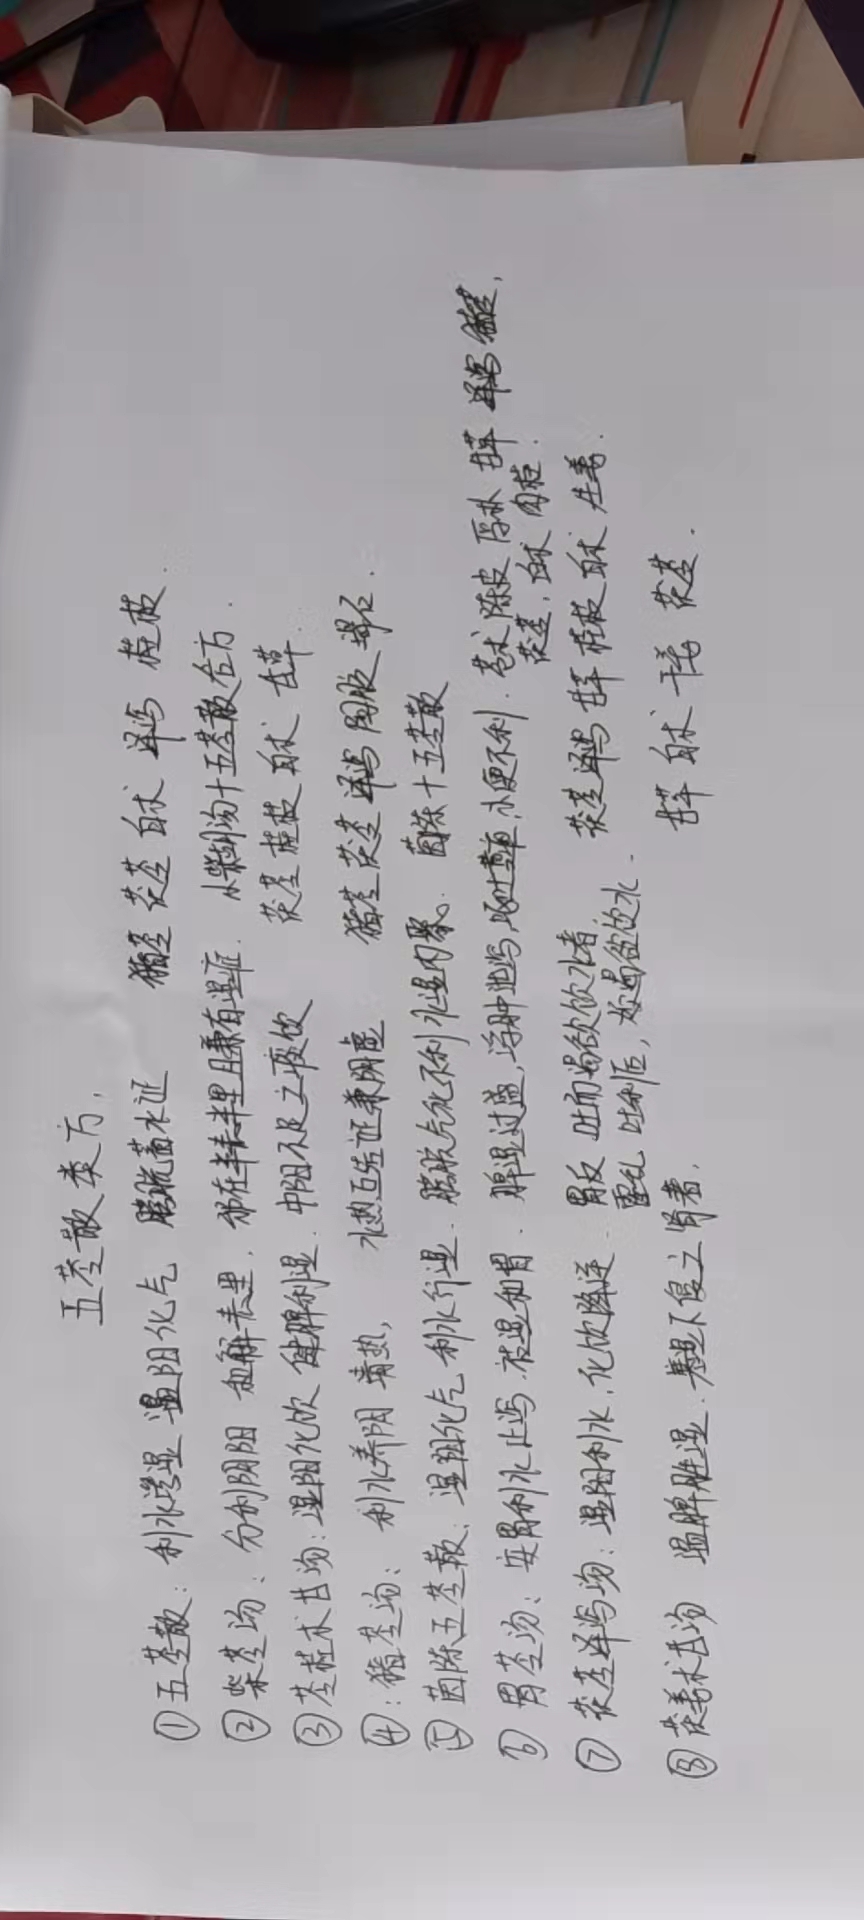 五苓散类方.
①五苓散: 利水渗湿 温阳化气 膀胱蓄水证 猪苓 茯苓 白术 泽泻 桂枝.
②柴苓汤: 分利阴阳 和解表里. 邪在半表半里且兼有湿症. 小柴胡汤+五苓散合方.
③苓桂术甘汤: 温阳化饮 健脾利湿. 中阳不足之痰饮 茯苓 桂枝 白术 甘草.
④: 猪苓汤: 利水养阴 清热, 水热互结证兼阴虚 猪苓 茯苓 泽泻 阿胶 滑石.
⑤茵陈五苓散: 温阳化气 利水行湿. 膀胱气化不利 水湿内聚. 茵陈+五苓散
⑥胃苓汤: 安胃利水止泻.祛湿和胃. 脾湿过盛,浮肿泄泻,呕吐黄疸,小便不利. 苍术 陈皮 厚朴 甘草 泽泻 猪苓,
茯苓, 白术 肉桂.
⑦茯苓泽泻汤: 温阳利水,化饮降逆. 胃反 吐而渴欲饮水者 茯苓 泽泻 甘草 桂枝 白术 生姜.
霍乱 吐利后, 渴欲饮水.
⑧茯姜术甘汤 温脾胜湿. 寒湿下侵之肾着. 甘草 白术 干姜 茯苓.